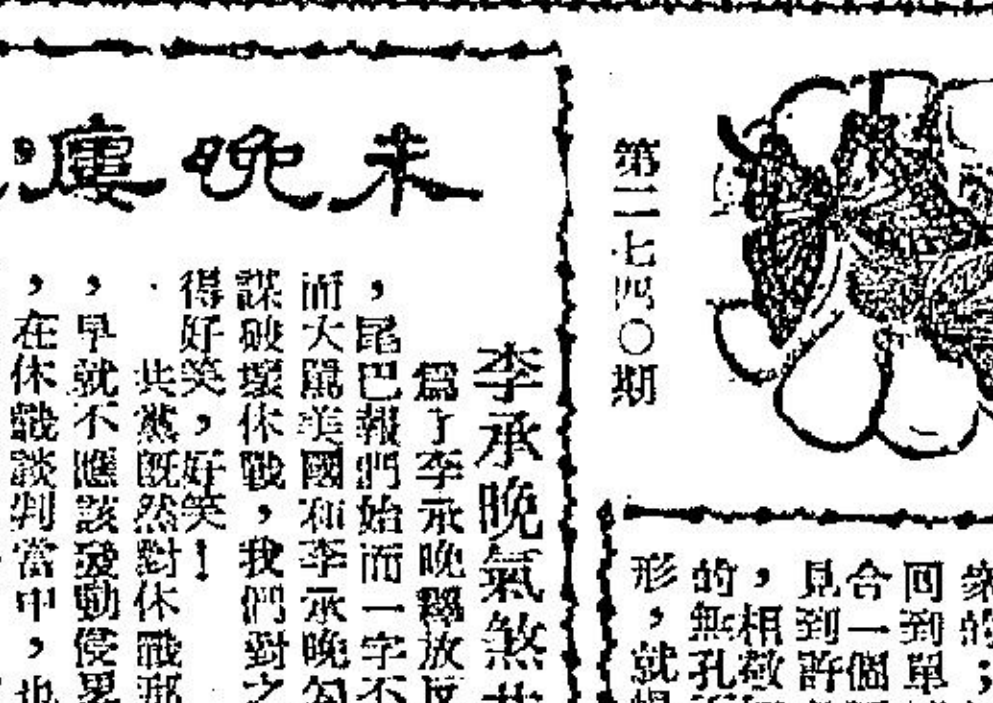 第二七四〇期
衆的；
回到單
合一個
見到許
，相敬
的無孔
形，就
未晚廔
李承晚氣煞共
爲了李承晚釋放反
，尾巴報們始而一字不
而大駡美國和李承晚勾
謀破壞休戰，我們對之
得好笑，好笑！
共黨既然對休戰那
，早就不應該發動侵畧
，在休戰談判當中，也